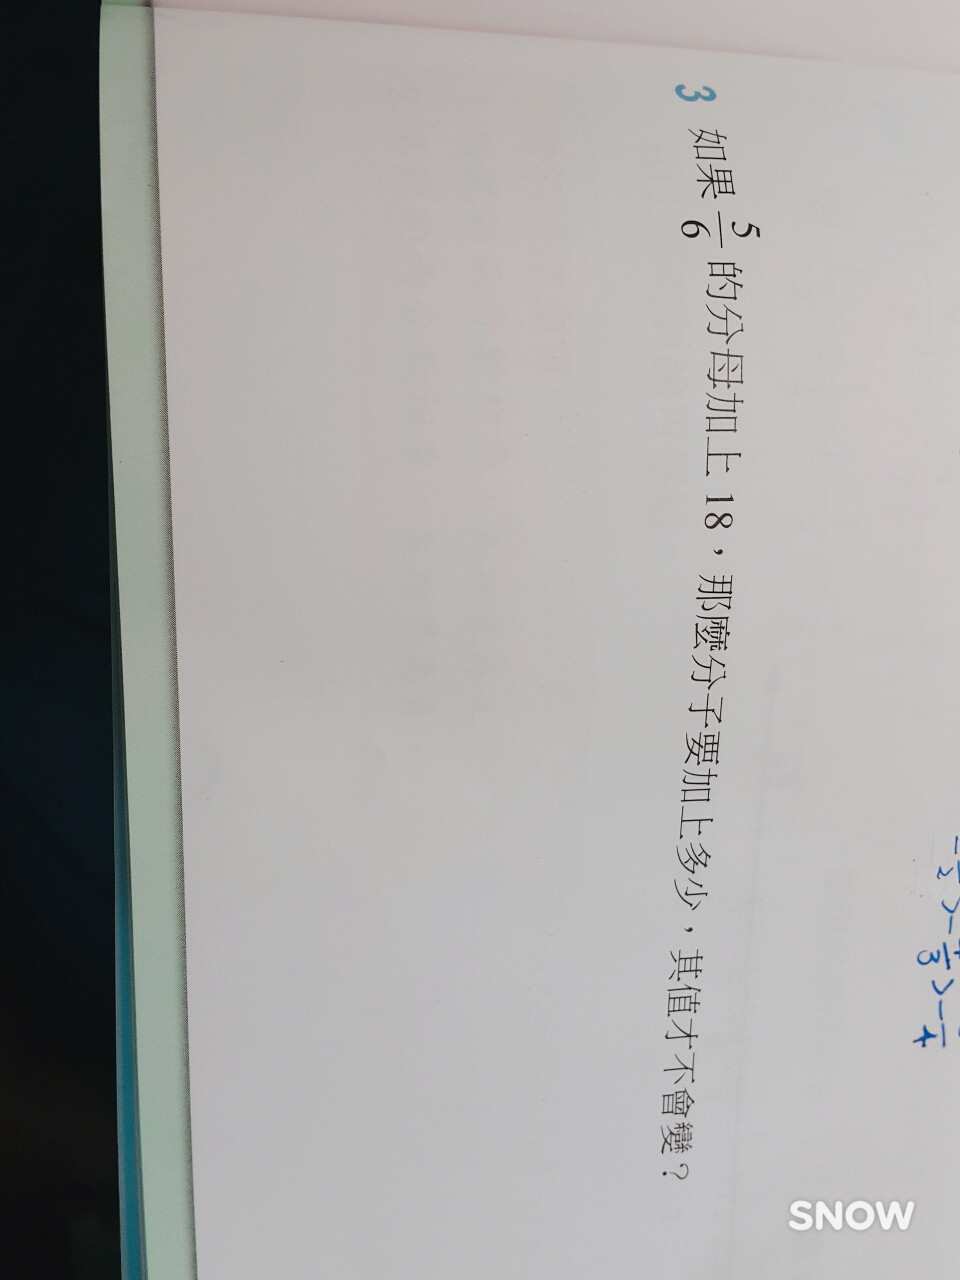 3 如果 5/6 的分母加上 18，那麼分子要加上多少，其值才不會變？
SNOW